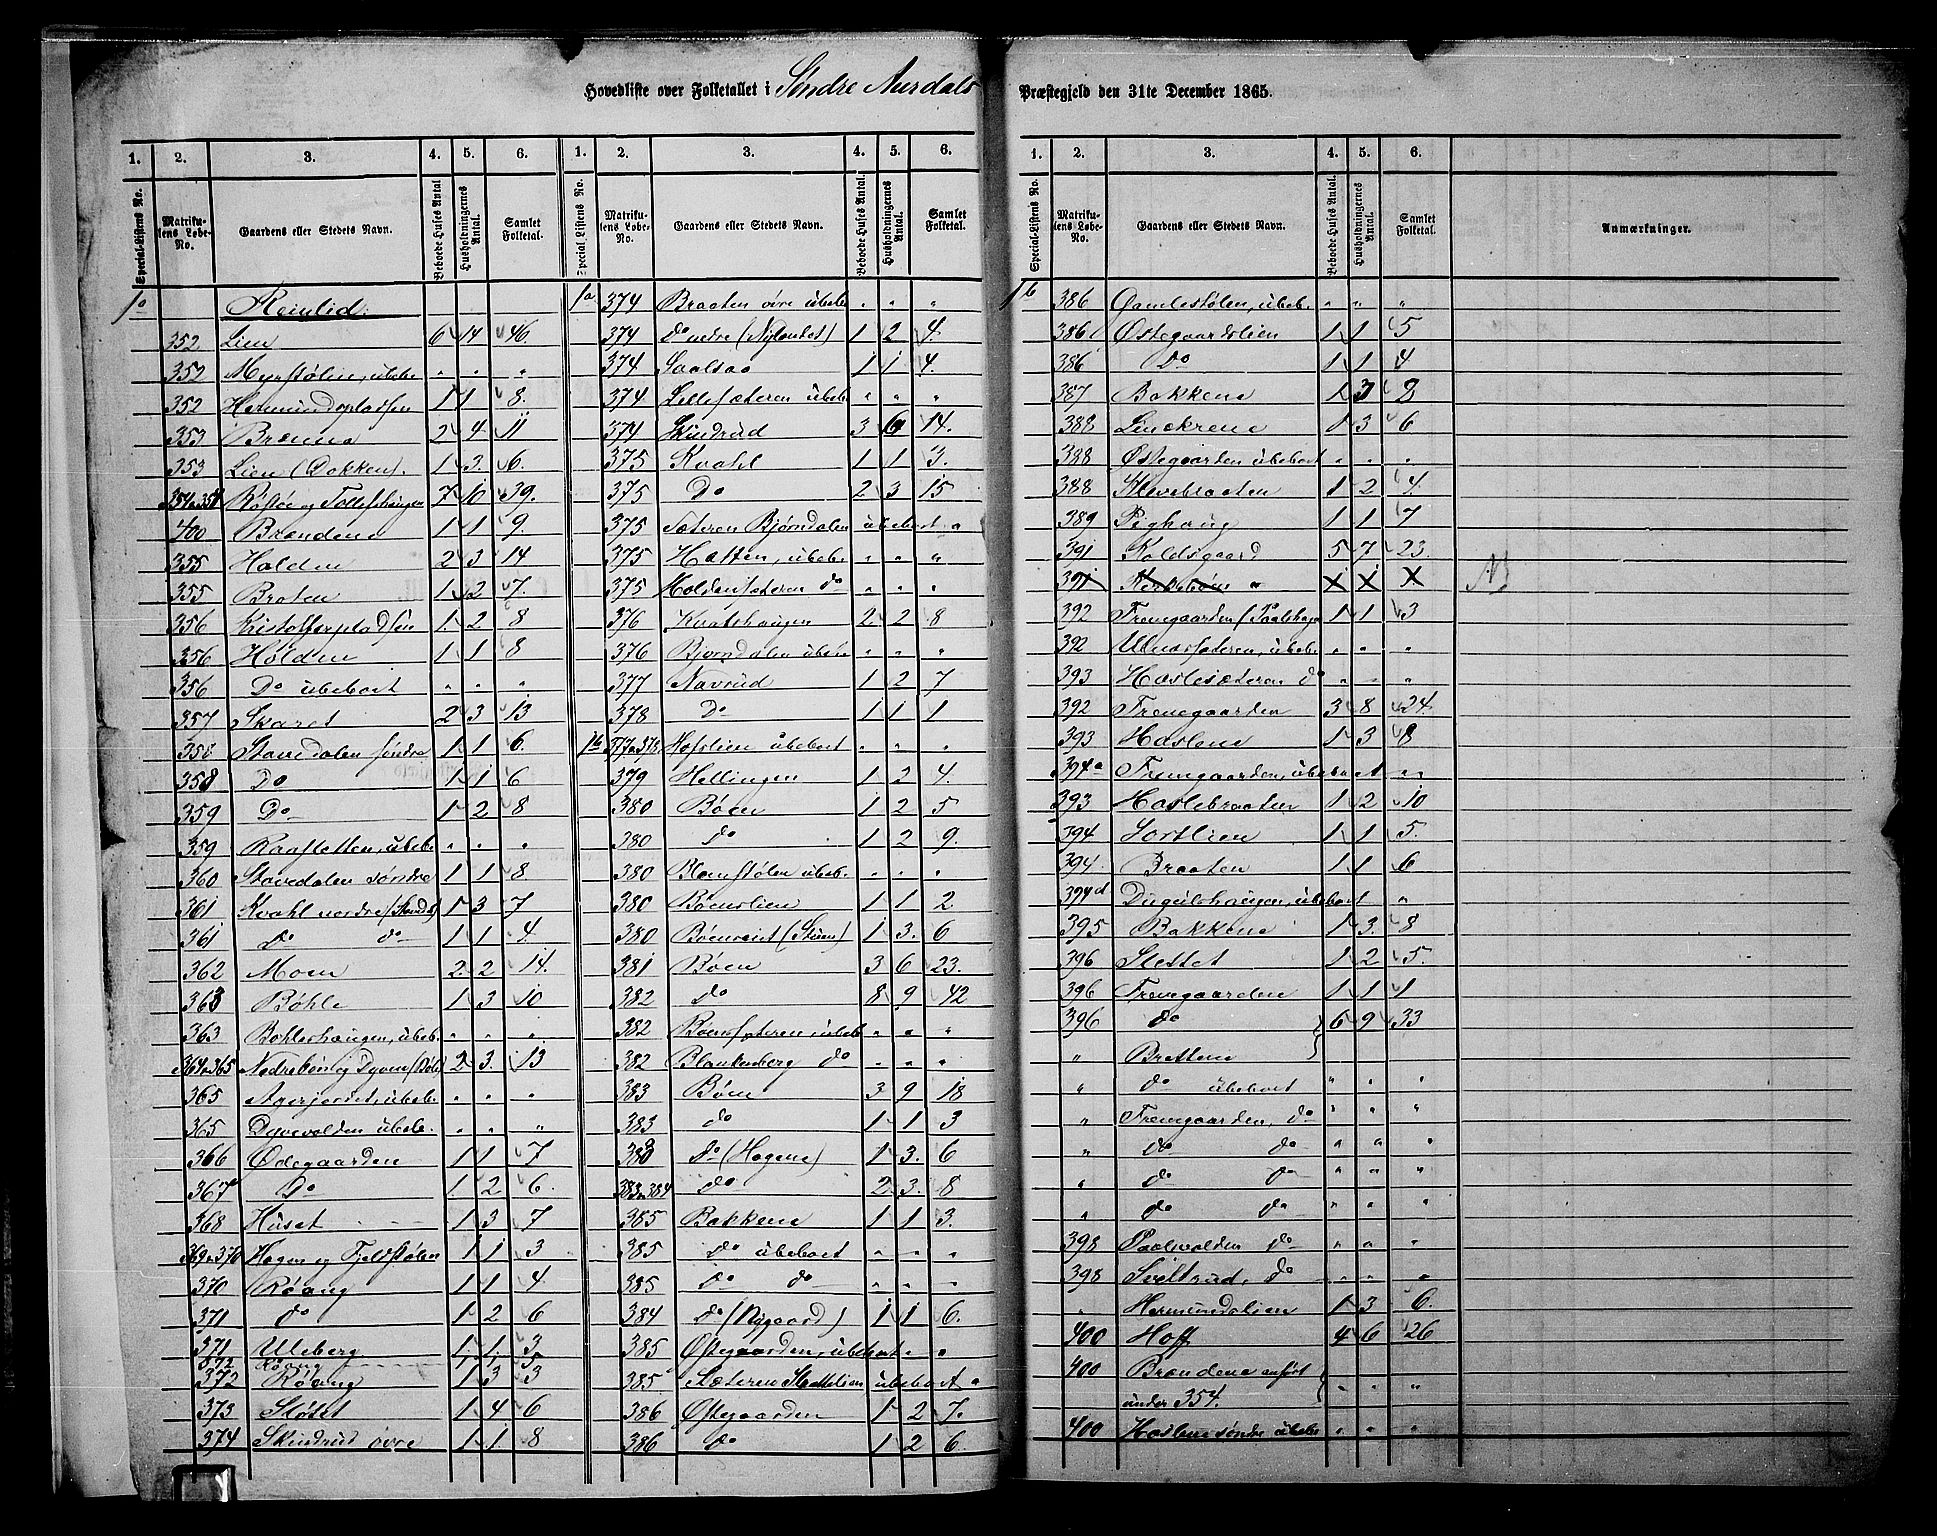 Hovedliste over Folketallet i Søndre Aurdals Præstegjeld den 31te December 1865.
1. 2. 3. 4. 5. 6. 1. 2. 3. 4. 5. 6.
Special-Listens No. Matrikulens Løbe-No. Gaardens eller Stedets Navn. Beboede Huses Antal Husholdningernes Antal. Samlet Folketal. Special Listens No. Matrikulens Løbe-No. Gaardens eller Stedets Navn. Beboede Huses Antal. Husholdningernes Antal. Samlet Folketal.
1a Reinlid:
352 Lien 6 14 46.
352 Myrstølen, ubeb. " " "
352 Hermundspladsen 1 1 8.
353 Brenna 2 4 11
353 Lien (Dokken). 1 3. 6.
354 a 358 Røstøe og Tollefshaugen 7 10 39.
400 Brændene 1 1 9.
355 Halden 2 3 14
355 Broten 1 2 7.
356 Kristoffersplads 1. 2 8
356 Hølden 1 1 8
356 Do ubeboet " " "
357 Skaret 2 3 13
358 Stavedalen søndre 1 1 6.
358 Do 1 1 6
359 Do 1 2 8
359 Raasletten, ubeb. " " "
360 Stavedalen søndre 1 1 8
361 Kvahl nordre 1 3 7
361 Do do 1 1 4.
362 Moen 2 2 14.
363 Bøhle 1 3 10
363 Bøhlerhaugen, ubeb. " " "
364 a 365 Nedrebøen og Dyven 2 3. 13
365 Agerjordet, ubeb. " " "
365 Dyvevolden ubeb. " " "
366 Ødegaarden 1 1 7
367 Do 1. 2 6.
368 Huset 1 3 7
369 a 370 Hagen og Fjeldstølen 1 1 3
370 Røang 1 1 4.
371 do 1 2 6
371 Uleberg 1. 1. 3
372 Røang 1 3 3
373 Sløtet 1 4 6
374 Skindrud øvre 1 1 8
1a 374 Braaten øvre ubeb. " " "
374 do nedre (Nylandet) 1 2 4.
374 Saalsaa 1 1 4.
374 Lillesæteren ubeb. " " "
374 Skindrud 3 6 14.
375 Kvahl 1 1 3.
375 Do 2 3 15
375 Sæteren Bjørndalen ubeboet "
375 Hatten, ubeb. " " "
375 Holdensæteren do " " "
376 Kvalshaugen 2 2 8
376 Bjørndalen ubeb. " " "
377 Navrud 1 2 7
378 Do 1 1 1
1b 377 a 378 Hofslien ubeboet " " "
379 Hellingen 1 2 4.
380 Bøen 1 2 5
380 do 1 2 9.
380 Blomstølen ubeb. " " "
380 Bøenslien 1 1 2
380 Bøenveiet (Stuen) 1 3. 6
381 Bøen 3 6 23.
382 do 8 9 42
382 Bøensæteren, ubeb. " " "
382 Blankenberg do " " "
383 Bøen 3 9 18
383 do 1 1 3
383 do (Hagene) 1 3. 6
383 a 384 do 2 3. 8
385 Bakkene 1 1 3.
385 do ubeboet " " "
385 do do " " "
384 do (Nygaard) 1 1 6.
385 Østegaarden, ubeboet " "
385 Sæteren Slættelien ubeboet "
386 Østegaarden 1 2 7.
386 do 1 2 6.
1. 2. 3. 4. 5. 6.
Special-Listens No. Matrikulens Løbe-No. Gaardens eller Stedets Navn. Beboede Huses Antal. Husholdningernes Antal. Samlet Folketal. Anmærkninger.
1b 386 Gamlestølen, ubeb. " " "
386 Østegaardslien 1 1 5
386 Do 1 1 4
387 Bakkene 1 3 2
388 Linekrene 1 3 6
388 Østegaarden ubeboet " " "
388 Klevebraaten 1 2 4.
389 Pighaug 1 1 7
391 Koldsgaard 5 7 23.
391 " X X X
392 Fremgaarden (Paalshagen 1 1 3
392 Ulnessæteren, ubeb. " " "
393 Haslesæteren do " " "
392 Fremgaarden 3 8 24.
393 Haslene 1 3 8
394a Fremgaarden, ubeboet " "
393 Haslebraaten 1 2 10
394 Sortlien 1 1 5.
394. Braaten 1 1 6
394d Digulshaugen, ubeboet "
395 Bakkene 1 3. 8
396 Slettet 1 2 5
396 Fremgaarden 1 1 1
396 do 6 9 33
" Brettene
" do ubeboet " " "
" Fremgaarden, do " " "
" do do " " "
" do do " " "
" do do " " "
398 Paalevolden do " " "
398 Sveltrud, do " " "
" Hermundslien 1 3 6.
400 Hoff 4 6 26
400 Brændene anført
under 354. " " "
400 Haslene søndre ubeb. " " "